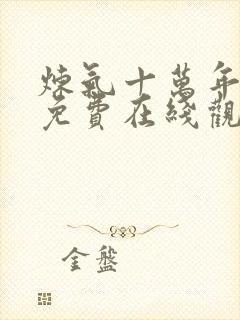 煉氣十萬年
免費在綫觀
金盤